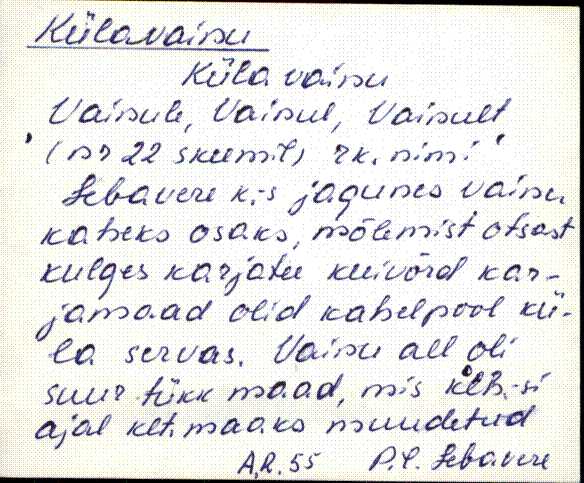 Külavainu
Küla vainu
Vainule, Vainul, Vainult
(nr 22 skeemil) rk. nimi
Lebavere k.-s jagunes vainu
kaheks osaks, mõlemist otsast
kulges karjatee kuivõrd kar-
jamaad olid kahelpool kü-
la servas. Vainu all oli
suur tükk maad, mis
ajal klt. maaks muudetud
A,R. 55 P.C. Lebavere